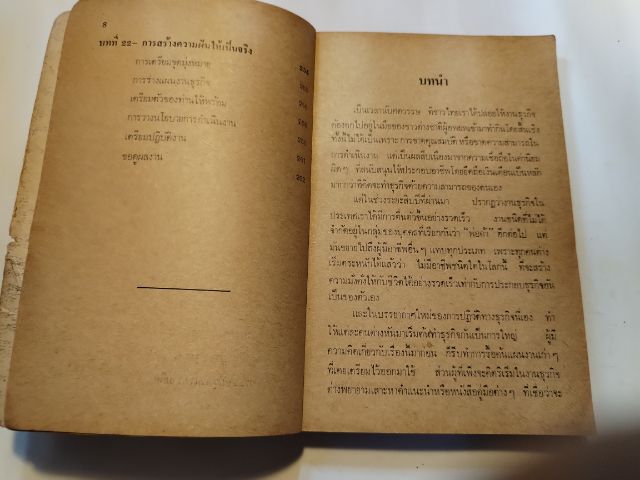 8
บทที่ 22- การสร้างความฝันให้เป็นจริง
การเตรียมจุดมุ่งหมาย
การร่างแผนงานธุรกิจ
เตรียมตัวของท่านให้พร้อม
การวางนโยบายการดำเนินงาน
เตรียมปฏิบัติงาน
ขอดูผลงาน
บทนำ
เป็นเวลานับศตวรรษ ที่ชาวไทยเราได้ปล่อยให้งานธุรกิจ
ต้องตกไปอยู่ในมือของชาวต่างชาติผู้อพยพเข้ามาทำกินโดยสิ้นเชิง
ทั้งนี้ไม่ได้เป็นเพราะการขาดคุณสมบัติ หรือขาดความสามารถใน
การดำเนินงาน แต่เป็นผลสืบเนื่องมาจากความเชื่อถือในค่านิยม
ผิดๆ ที่สนับสนุนให้ประกอบอาชีพโดยยึดถือเงินเดือนเป็นหลัก
มากกว่าที่คิดจะทำธุรกิจด้วยความสามารถของตนเอง
แต่ในช่วงระยะสิบปีที่ผ่านมา ปรากฏว่างานธุรกิจใน
ประเทศเราได้มีการตื่นตัวขึ้นอย่างรวดเร็ว งานชนิดที่ไม่ได้
จำกัดอยู่ในกลุ่มของบุคคลที่เรียกกันว่า "พ่อค้า" อีกต่อไป แต่
มันขยายไปถึงผู้มีอาชีพอื่นๆ แทบทุกประเภท เพราะทุกคนต่าง
เริ่มตระหนักได้แล้วว่า ไม่มีอาชีพชนิดใดในโลกนี้ ที่จะสร้าง
ความมั่งคั่งให้กับชีวิตได้อย่างรวดเร็วเท่ากับการประกอบธุรกิจอัน
เป็นของตัวเอง
และในบรรยากาศใหม่ของการปฏิวัติทางธุรกิจนี้เอง ทำ
ให้แต่ละคนต่างหันมาเริ่มต้นทำธุรกิจกันเป็นการใหญ่ ผู้มี
ความคิดเกี่ยวกับเรื่องนี้มาก่อน ก็รีบทำการรื้อค้นแผนงานเก่าๆ
ที่เคยเตรียมไว้ออกมาใช้ ส่วนผู้ที่เพิ่งจะคิดริเริ่มในงานธุรกิจ
ต่างพยายามเสาะหาคำแนะนำหรือหนังสือคู่มือต่างๆ ที่เชื่อว่าจะ